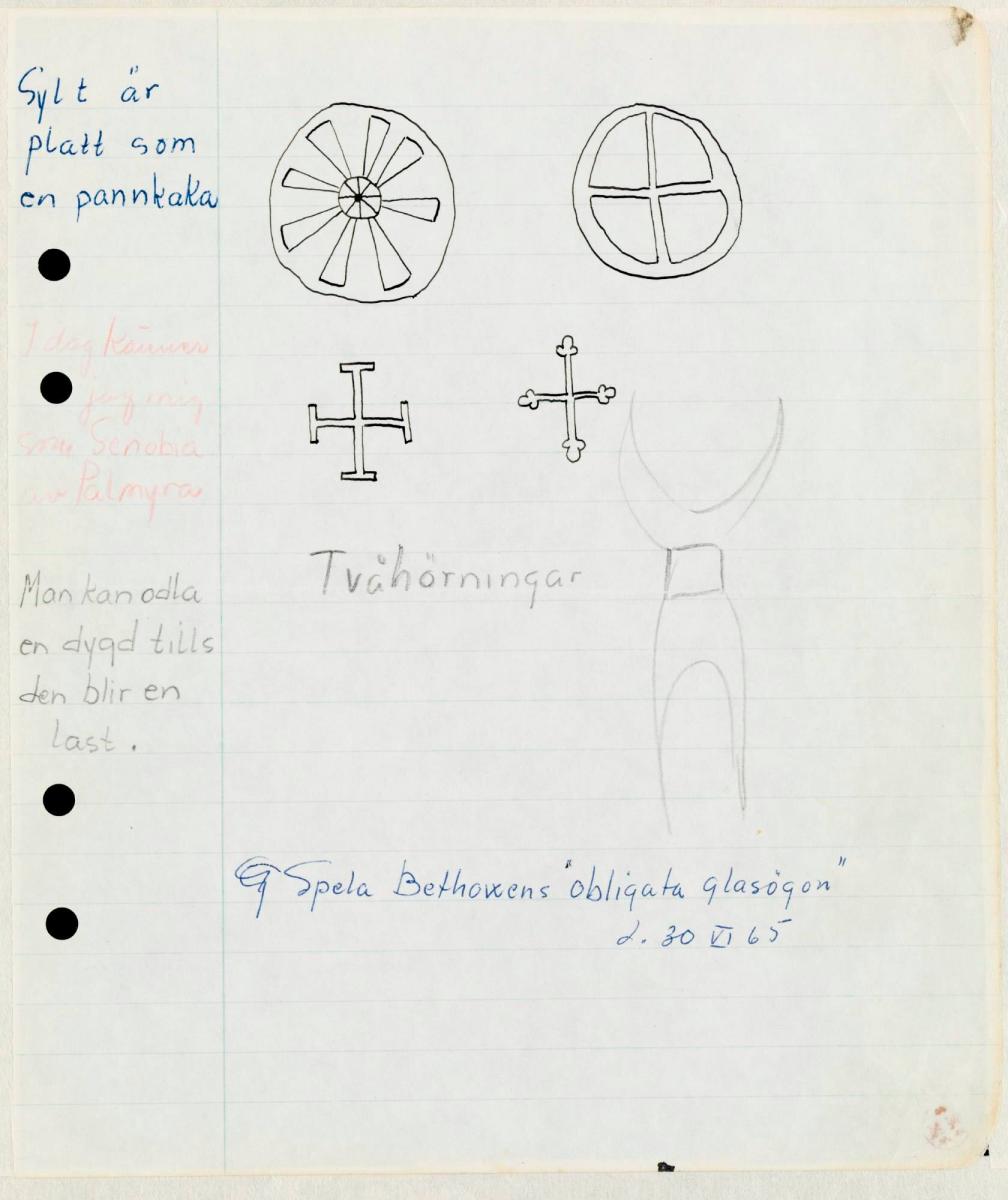 Sylt är
platt som
en pannkaka
I dag känner
jag mig
som Senobia
av Palmyra
Man kan odla
en dygd tills
den blir en
last.
Tvåhörningar
Spela Bethovens "obligata glasögon"
d. 30 VI 65